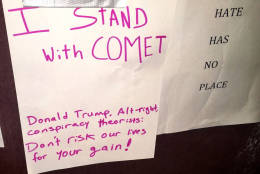 I STAND
with COMET
Donald Trump, Alt-right
conspiracy theorists:
Don't risk our lives
for your gain!
HATE
HAS
NO
PLACE